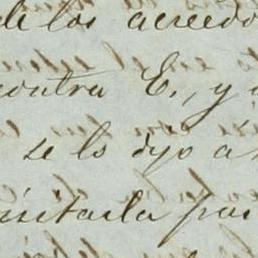 de los acreedo
contra E., y
se lo dijo a
sitarla par